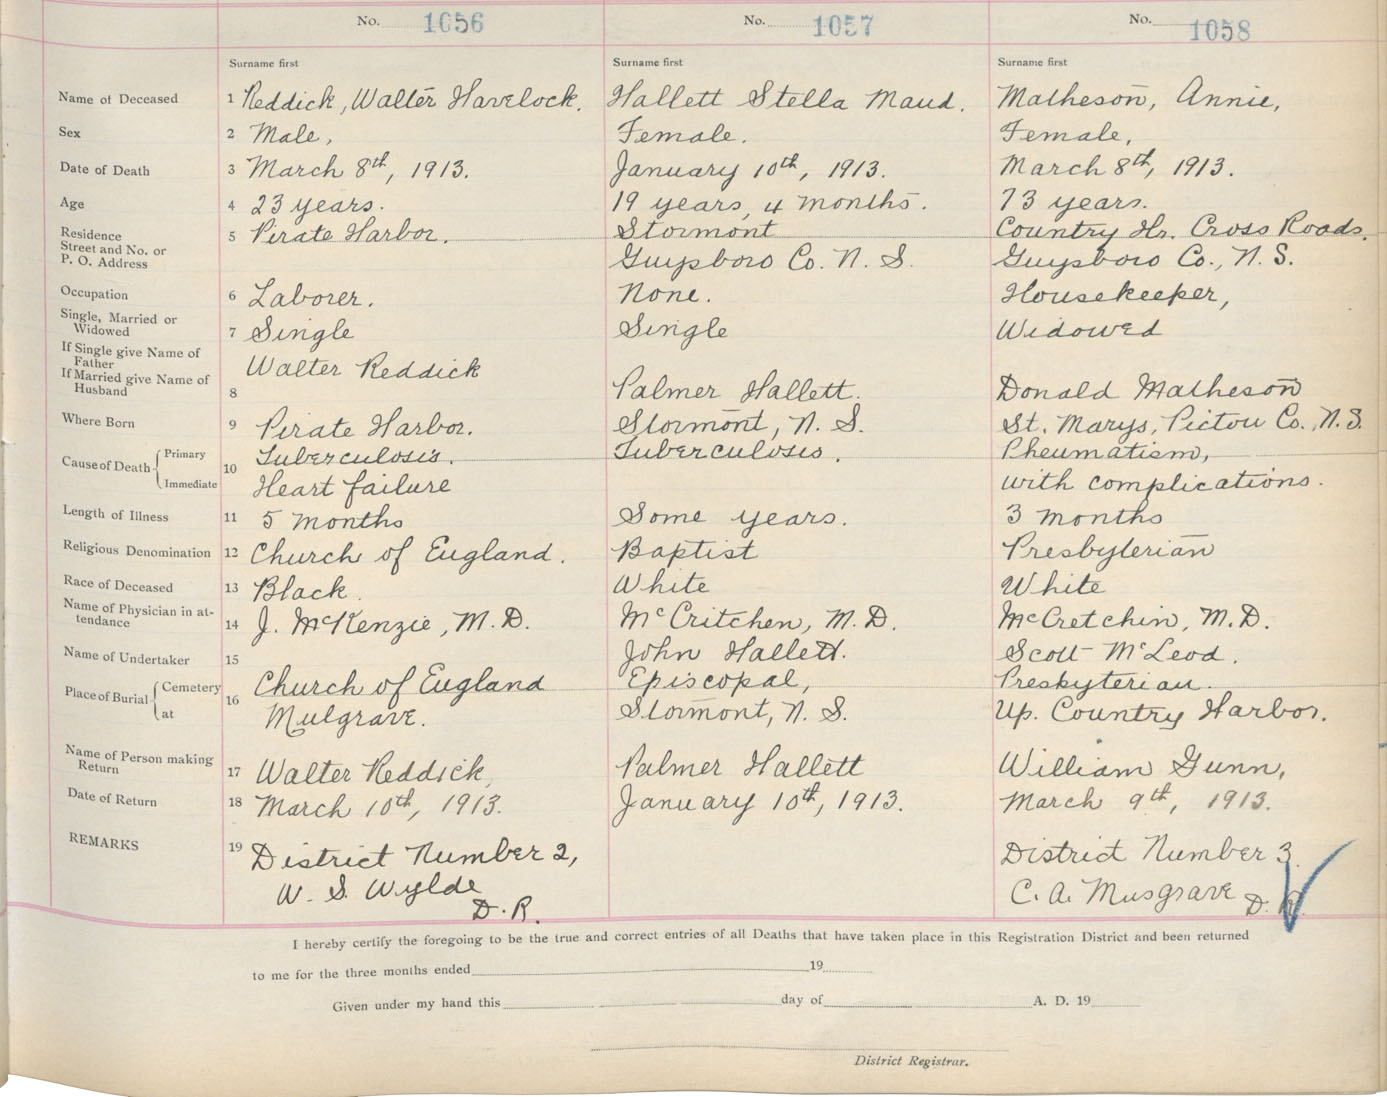 No. 1056 No. 1057 No. 1058
Surname first Surname first Surname first
Name of Deceased 1 Reddick, Walter Havelock. Hallett Stella Maud. Matheson, Annie,
Sex 2 Male, Female. Female,
Date of Death 3 March 8th, 1913. January 10th, 1913. March 8th, 1913.
Age 4 23 years. 19 years, 4 months. 73 years.
Residence 5 Pirate Harbor. Stormont Country Hr. Cross Roads.
Street and No. or
P. O. Address Guysboro Co. N. S. Guysboro Co., N. S.
Occupation 6 Laborer. None. Housekeeper,
Single, Married or
Widowed 7 Single Single Widowed
If Single give Name of
Father Walter Reddick
If Married give Name of
Husband 8 Palmer Hallett. Donald Matheson
Where Born 9 Pirate Harbor. Stormont, N. S. St. Marys, Pictou Co., N.S.
Cause of Death Primary 10 Tuberculosis. Tuberculosis. Rheumatism,
Immediate Heart failure with complications.
Length of Illness 11 5 months Some years. 3 months
Religious Denomination 12 Church of England. Baptist Presbyterian
Race of Deceased 13 Black. White White
Name of Physician in at-
tendance 14 J. McKenzie, M.D. McCritchen, M.D. McCretchin, M.D.
Name of Undertaker 15 John Hallett. Scott McLeod.
Place of Burial Cemetery 16 Church of England Episcopal, Presbyterian.
at Mulgrave. Stormont, N. S. Up. Country Harbor.
Name of Person making
Return 17 Walter Reddick, Palmer Hallett William Gunn,
Date of Return 18 March 10th, 1913. January 10th, 1913. March 9th, 1913.
REMARKS 19 District Number 2, District Number 3
W. S. Wylde C. A. Musgrave D. R.
D. R.
I hereby certify the foregoing to be the true and correct entries of all Deaths that have taken place in this Registration District and been returned
to me for the three months ended 19
Given under my hand this day of A. D. 19
District Registrar.